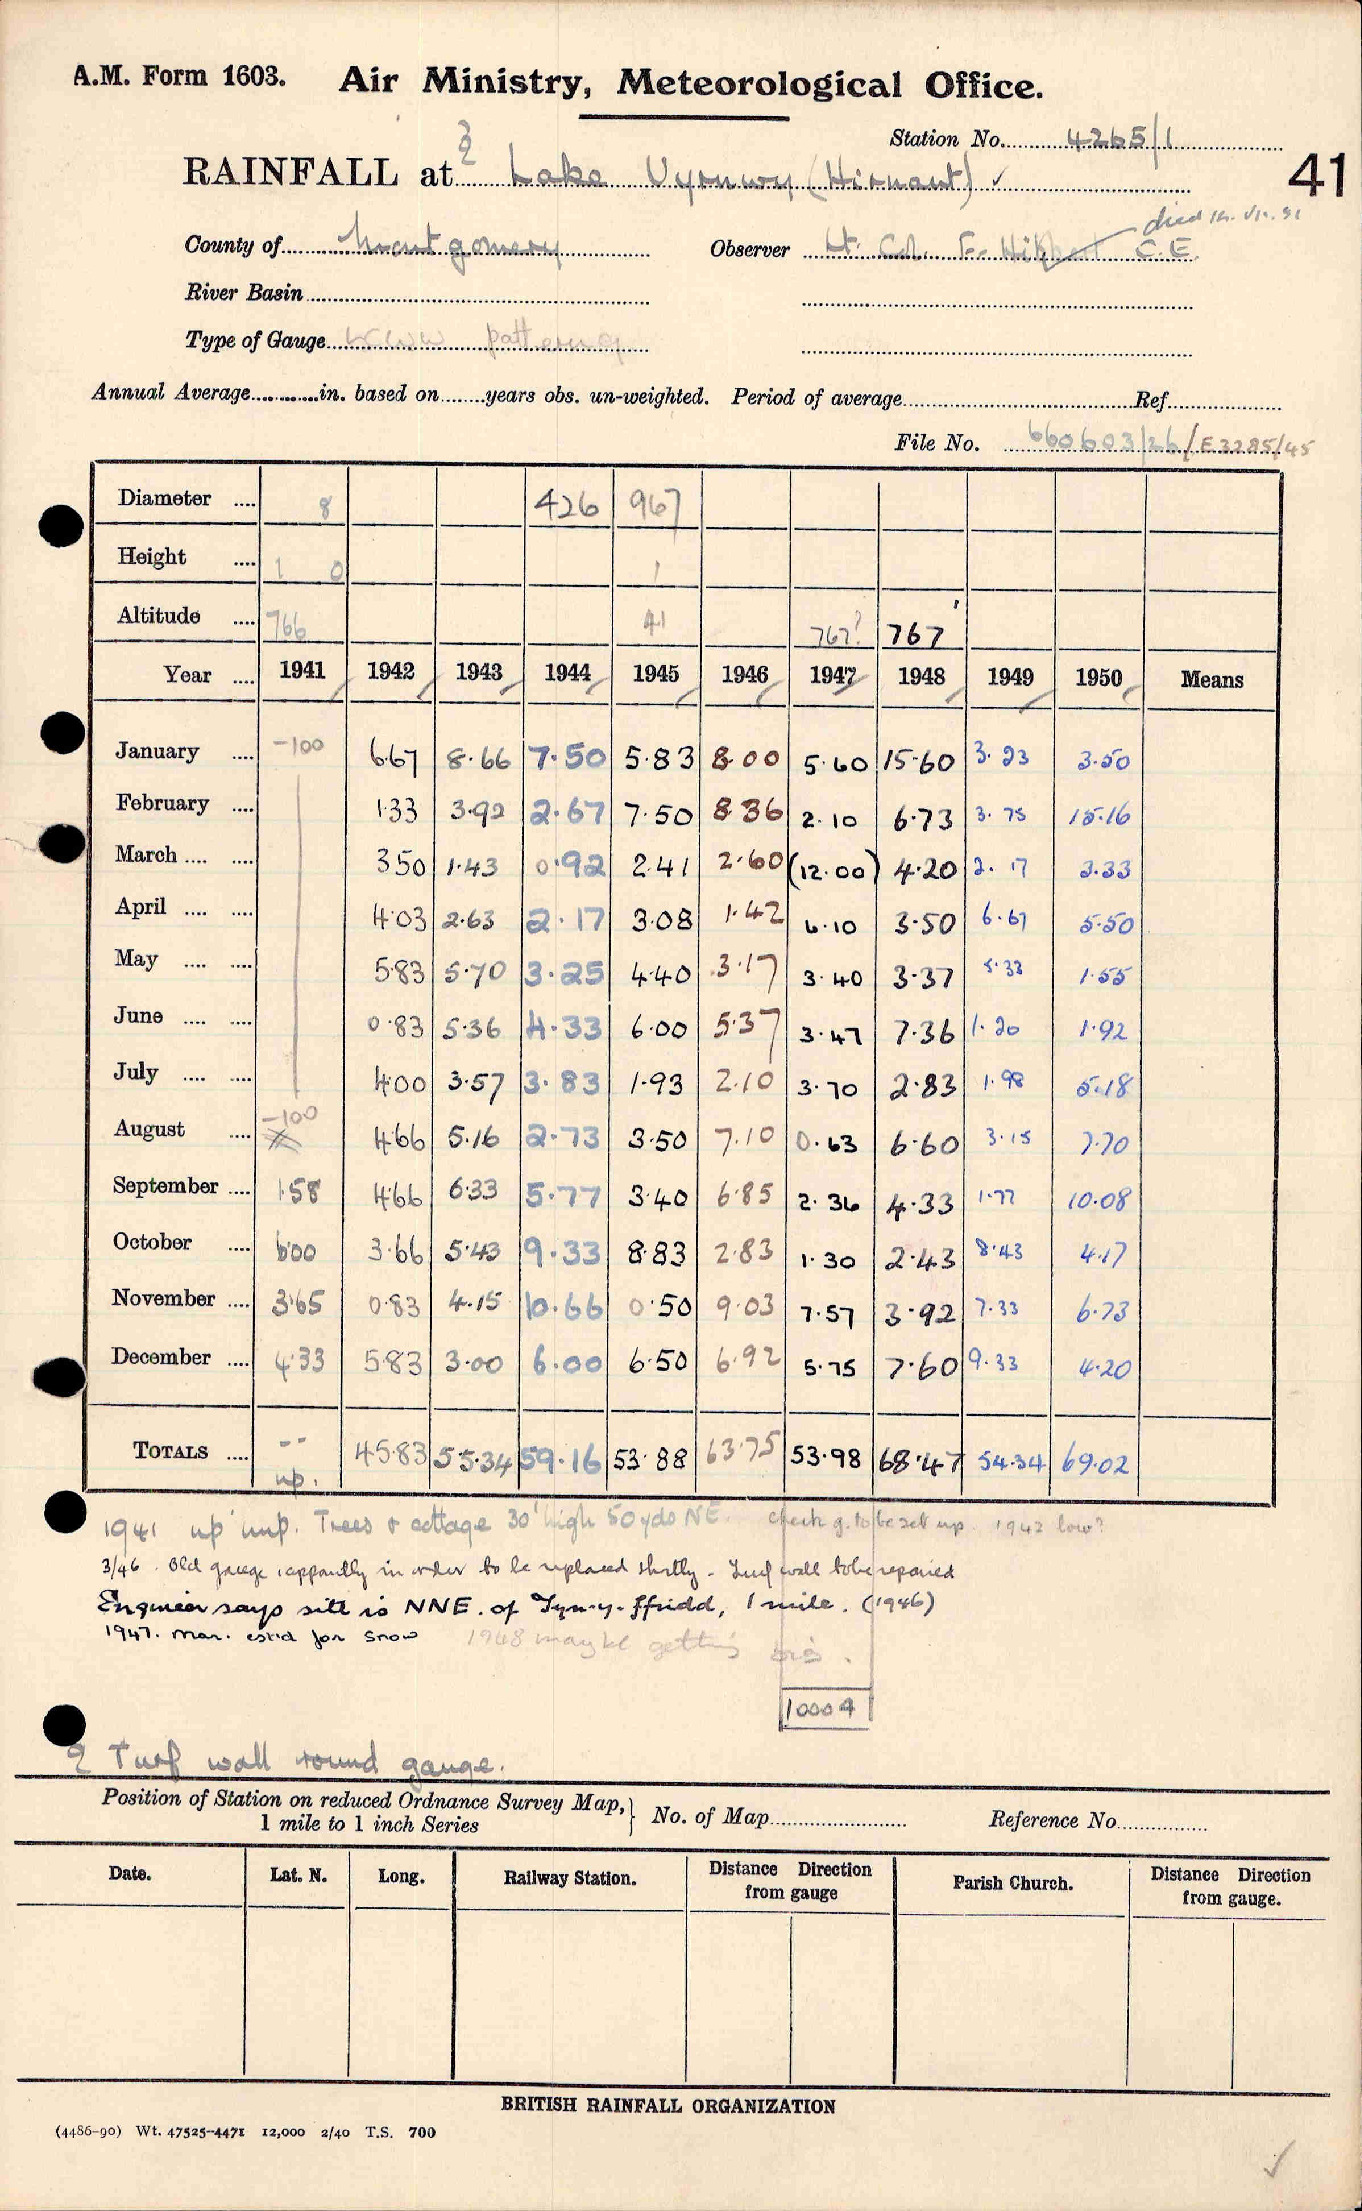 A.M. Form 1603. Air Ministry, Meteorological Office.
Station No. 4265/1
RAINFALL at Lake Vyrnwy (Hirnant) ✓
41
died
County of Montgomery Observer Lt. Col. F. Hibbert C.E.
River Basin
Type of Gauge pattern
Annual Average in. based on years obs. un-weighted. Period of average Ref.
File No. 660603/26/E3285/45
Diameter .... 8 426 967
Height .... 1 0 1
Altitude .... 766 41 767? 767'
Year .... 1941 1942 1943 1944 1945 1946 1947 1948 1949 1950 Means
January .... -100 6.67 8.66 7.50 5.83 8.00 5.60 15.60 3.23 3.50
February .... 1.33 3.92 2.67 7.50 8.36 2.10 6.73 3.75 15.16
March .... .... 3.50 1.43 0.92 2.41 2.60 (12.00) 4.20 2.17 3.33
April .... .... 4.03 2.63 2.17 3.08 1.42 6.10 3.50 6.67 5.50
May .... .... 5.83 5.70 3.25 4.40 3.17 3.40 3.37 5.33 1.55
June .... .... 0.83 5.36 4.33 6.00 5.37 3.47 7.36 1.20 1.92
July .... .... 4.00 3.57 3.83 1.93 2.10 3.70 2.83 1.98 5.18
August .... -100 4.66 5.16 2.73 3.50 7.10 0.63 6.60 3.15 7.70
September .... 1.58 4.66 6.33 5.77 3.40 6.85 2.36 4.33 1.77 10.08
October .... 6.00 3.66 5.43 9.33 8.83 2.83 1.30 2.43 8.43 4.17
November .... 3.65 0.83 4.15 10.66 0.50 9.03 7.57 3.92 7.33 6.73
December .... 4.33 5.83 3.00 6.00 6.50 6.92 5.75 7.60 9.33 4.20
TOTALS .... -- 45.83 55.34 59.16 53.88 63.75 53.98 68.47 54.34 69.02
up.
1941 up unp. Trees & cottage 30' high 50 yds NE. check g. to be set up 1942 low?
3/46. Old gauge, apparently in order to be replaced shortly - Turf wall to be repaired
Engineer says site is NNE. of Tyn-y-ffridd, 1 mile. (1946)
1947. Mar. est'd for snow 1948 may be getting
10004
Turf wall round gauge.
Position of Station on reduced Ordnance Survey Map, 1 mile to 1 inch Series } No. of Map Reference No.
Date. Lat. N. Long. Railway Station. Distance Direction from gauge Parish Church. Distance Direction from gauge.
BRITISH RAINFALL ORGANIZATION
(4486-90) Wt. 47525-4471 12,000 2/40 T.S. 700